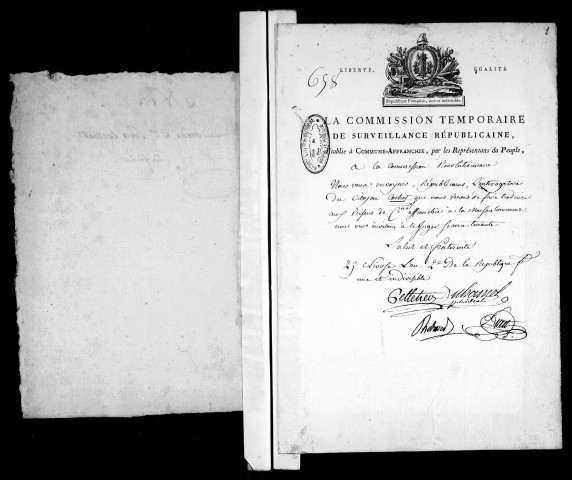 658
LIBERTÉ, ÉGALITÉ.
République Française, une et indivisible.
LA COMMISSION TEMPORAIRE
DE SURVEILLANCE RÉPUBLICAINE,
établie à COMMUNE-AFFRANCHIE, par les Représentans du Peuple,
a la commission Revolutionnaire
Nous vous envoyons, Républicains, L'interrogatoire
du citoyen que nous venons de faire traduire
aux Prisons de Cne affranchie a la
nous vous invitons à le Juger Seance tenante
Salut et fraternité
25 Nivose L'an 2e De la Republique f
une et indivisible